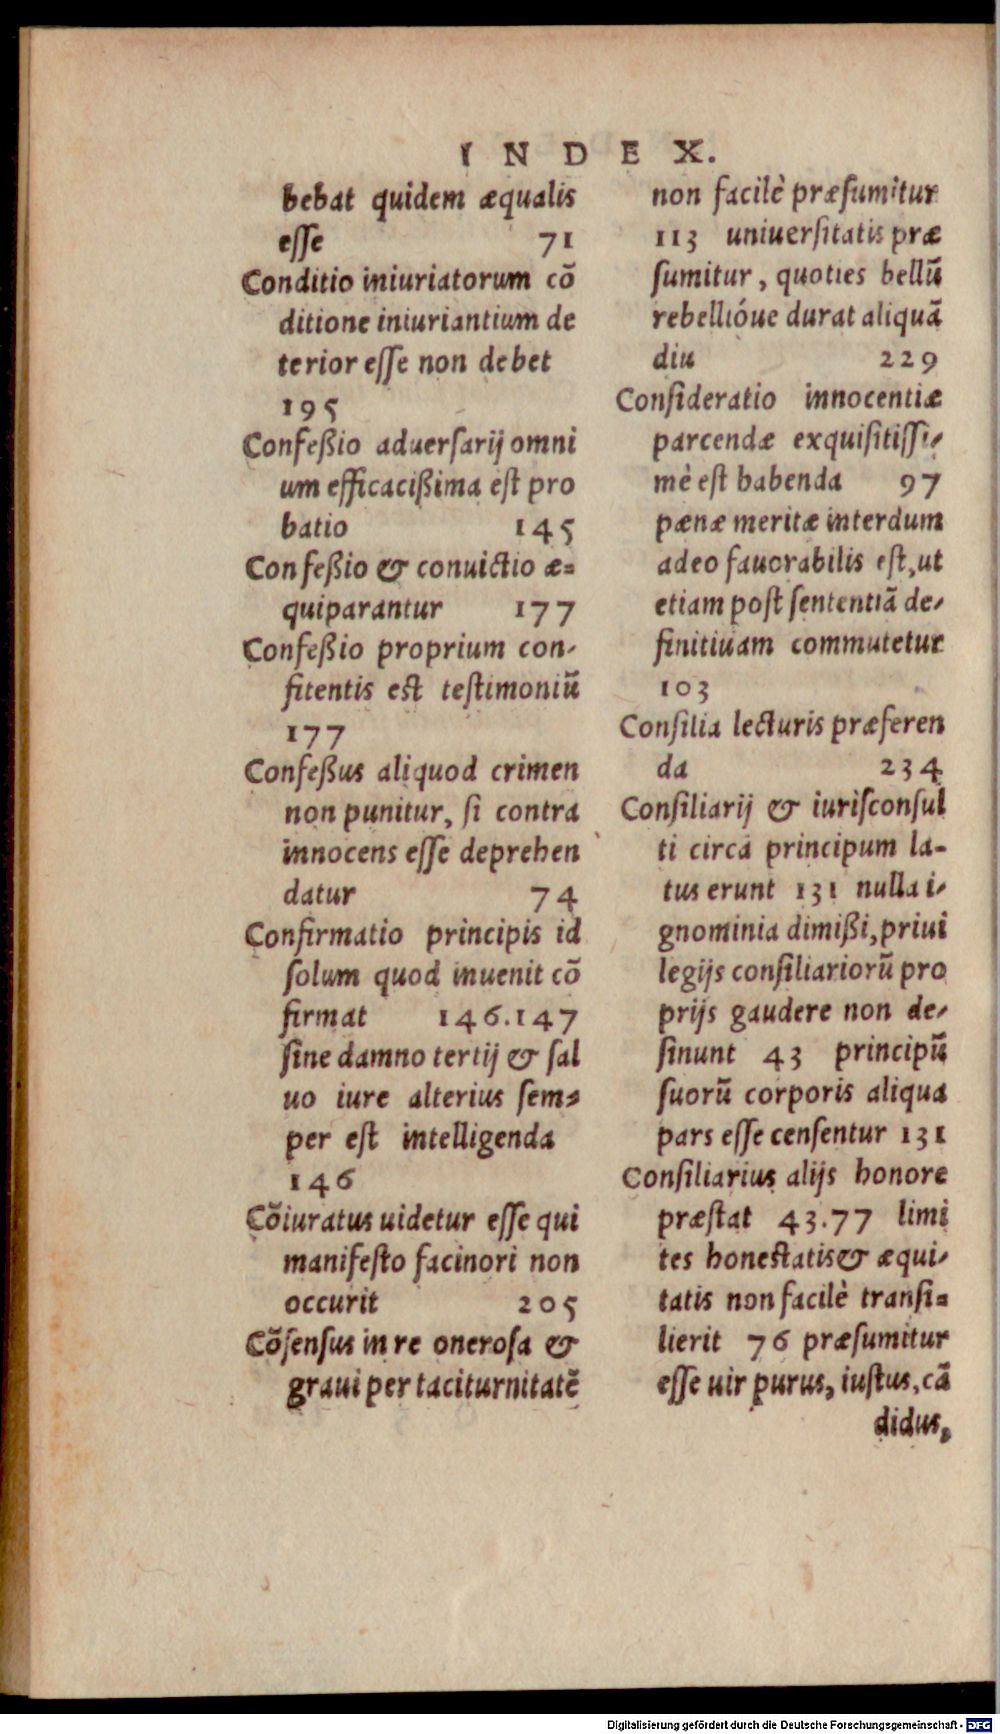 INDEX.
bebat quidem æqualis
esse 71
Conditio iniuriatorum cõ
ditione iniuriantium de
terior esse non debet
195
Confeßio aduersarij omni
um efficacißima est pro
batio 145
Confeßio & conuictio æ=
quiparantur 177
Confeßio proprium con-
fitentis est testimoniũ
177
Confeßus aliquod crimen
non punitur, si contra
innocens esse deprehen
datur 74
Confirmatio principis id
solum quod inuenit cõ
firmat 146.147
sine damno tertij & sal
uo iure alterius sem=
per est intelligenda
146
Cõiuratus uidetur esse qui
manifesto facinori non
occurit 205
Cõsensus in re onerosa &
graui per taciturnitatẽ
non facilè præsumitur
113 uniuersitatis præ
sumitur, quoties bellũ
rebellióue durat aliquã
diu 229
Consideratio innocentiæ
parcendæ exquisitissi-
mè est habenda 97
pænæ meritæ interdum
adeo fauorabilis est, ut
etiam post sententiã de-
finitiuam commutetur
103
Consilia lecturis præferen
da 234
Consiliarij & iurisconsul
ti circa principum la-
tus erunt 131 nulla i-
gnominia dimißi, priui
legijs consiliariorũ pro
prijs gaudere non de-
sinunt 43 principũ
suorũ corporis aliqua
pars esse censentur 131
Consiliarius alijs honore
præstat 43.77 limi
tes honestatis & æqui-
tatis non facilè transi=
lierit 76 præsumitur
esse uir purus, iustus, cã
didus,
Digitalisierung gefördert durch die Deutsche Forschungsgemeinschaft - DFG